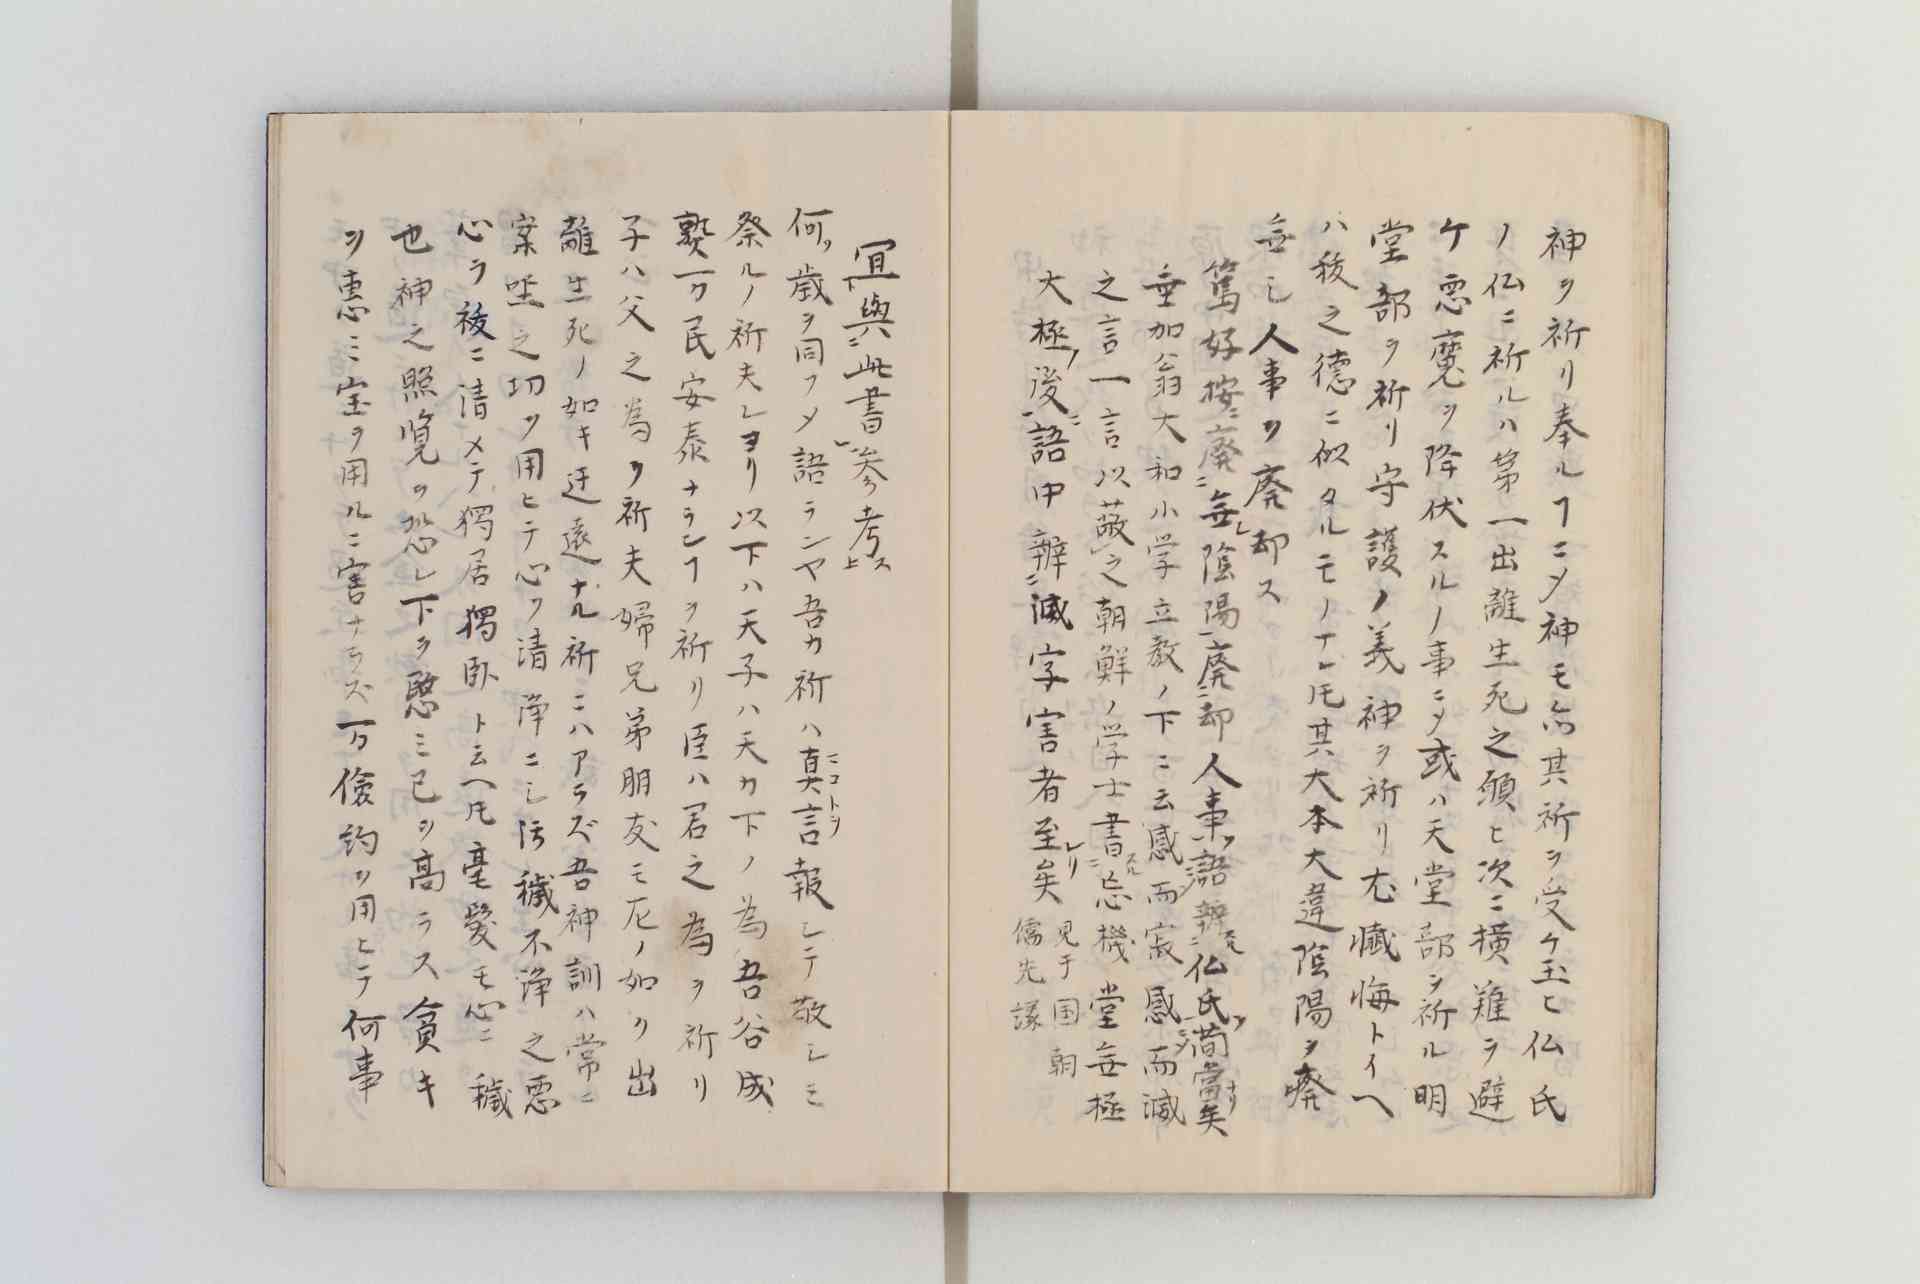 神ヲ祈リ奉ルヿニ〆神モ亦其祈ヲ受ケ玉ヒ仏氏
ノ仏ニ祈ルハ第一出離生死之願ヒ次ニ横難ヲ避
ケ悪魔ヲ降伏スルノ事ニ〆或ハ天堂部ヲ祈ル明
堂部ヲ祈リ守護ノ義神ヲ祈リ尤懺悔トイヘ
ハ秡之徳ニ似タルモノナレ𪜈其大本大違陰陽ヲ廃
無シ人事ヲ廃却ス
篤好按ニ廃ニ無レ陰陽一廃ニ却人事ヲ一語辨ニ仏氏ヲ一簡當矣
垂加翁大和小学立教ノ下ニ云感而寂感而滅
之言一言以蔽之朝鮮ノ学士書ニ忘機堂無極
大極ノ後ニ一語中辨ニ滅字害者至矣
見于国朝
儒先
宜下與ニ此書一参考上ス
何ソ歳ヲ同フ〆語ランヤ吾カ祈ハ真言報シテ敬シミ
祭ルノ祈夫レヨリ以下ハ天子ハ天カ下ノ為吾谷成
熟万民安泰ナランヿヲ祈リ臣ハ君之為ヲ祈リ
子ハ父之為ヲ祈夫婦兄弟朋友モ𠂰ノ如ク出
離生死ノ如キ迂遠ナル祈ニハアラズ吾神訓ハ常ニ
案坐之切ヲ用ヒテ心ヲ清浄ニシ汚穢不浄之悪
心ヲ祓ニ清メテ獨居獨臥ト云ヘ𪜈毫髪モ心ニ穢
也神之照覧ヲ恐レ下ヲ愍ミ己ヲ高ラス貪キ
ヲ恵ミ宝ヲ用ルニ害ナラズ万儉約ヲ用ヒテ何事